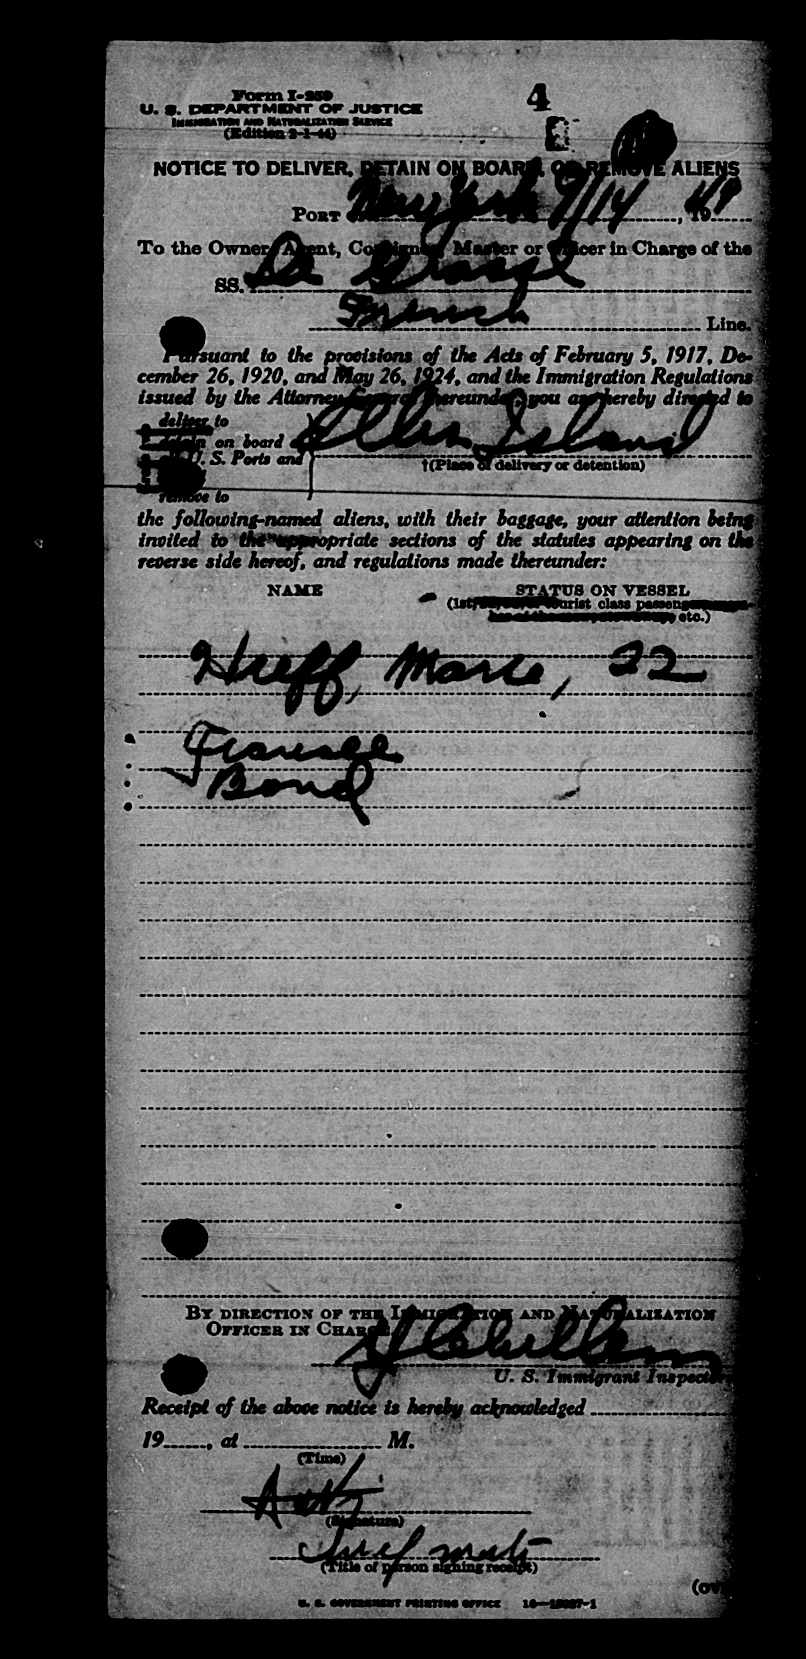 Form I-259
4
U. S. DEPARTMENT OF JUSTICE
IMMIGRATION AND NATURALIZATION SERVICE
(Edition 2-1-44)
NOTICE TO DELIVER, DETAIN ON BOARD, OR REMOVE ALIENS
PORT New York 9/14, 1949
To the Owner, Agent, Consignee, Master or Officer in Charge of the
SS. De Grasse
French Line.
Pursuant to the provisions of the Acts of February 5, 1917, De-
cember 26, 1920, and May 26, 1924, and the Immigration Regulations
issued by the Attorney General thereunder, you are hereby directed to
deliver to
on board
U. S. Ports and
Ellis Island
†(Place of delivery or detention)
remove to
the following-named aliens, with their baggage, your attention being
invited to the appropriate sections of the statutes appearing on the
reverse side hereof, and regulations made thereunder:
NAME STATUS ON VESSEL
(1st, tourist class passenger
etc.)
Marie, 22
Fiancee
Bond
BY DIRECTION OF THE IMMIGRATION AND NATURALIZATION
OFFICER IN CHARGE
U. S. Immigrant Inspector
Receipt of the above notice is hereby acknowledged
19, at M.
(Time)
(Signature)
Chief mate
(Title of person signing receipt)
(ov
U. S. GOVERNMENT PRINTING OFFICE